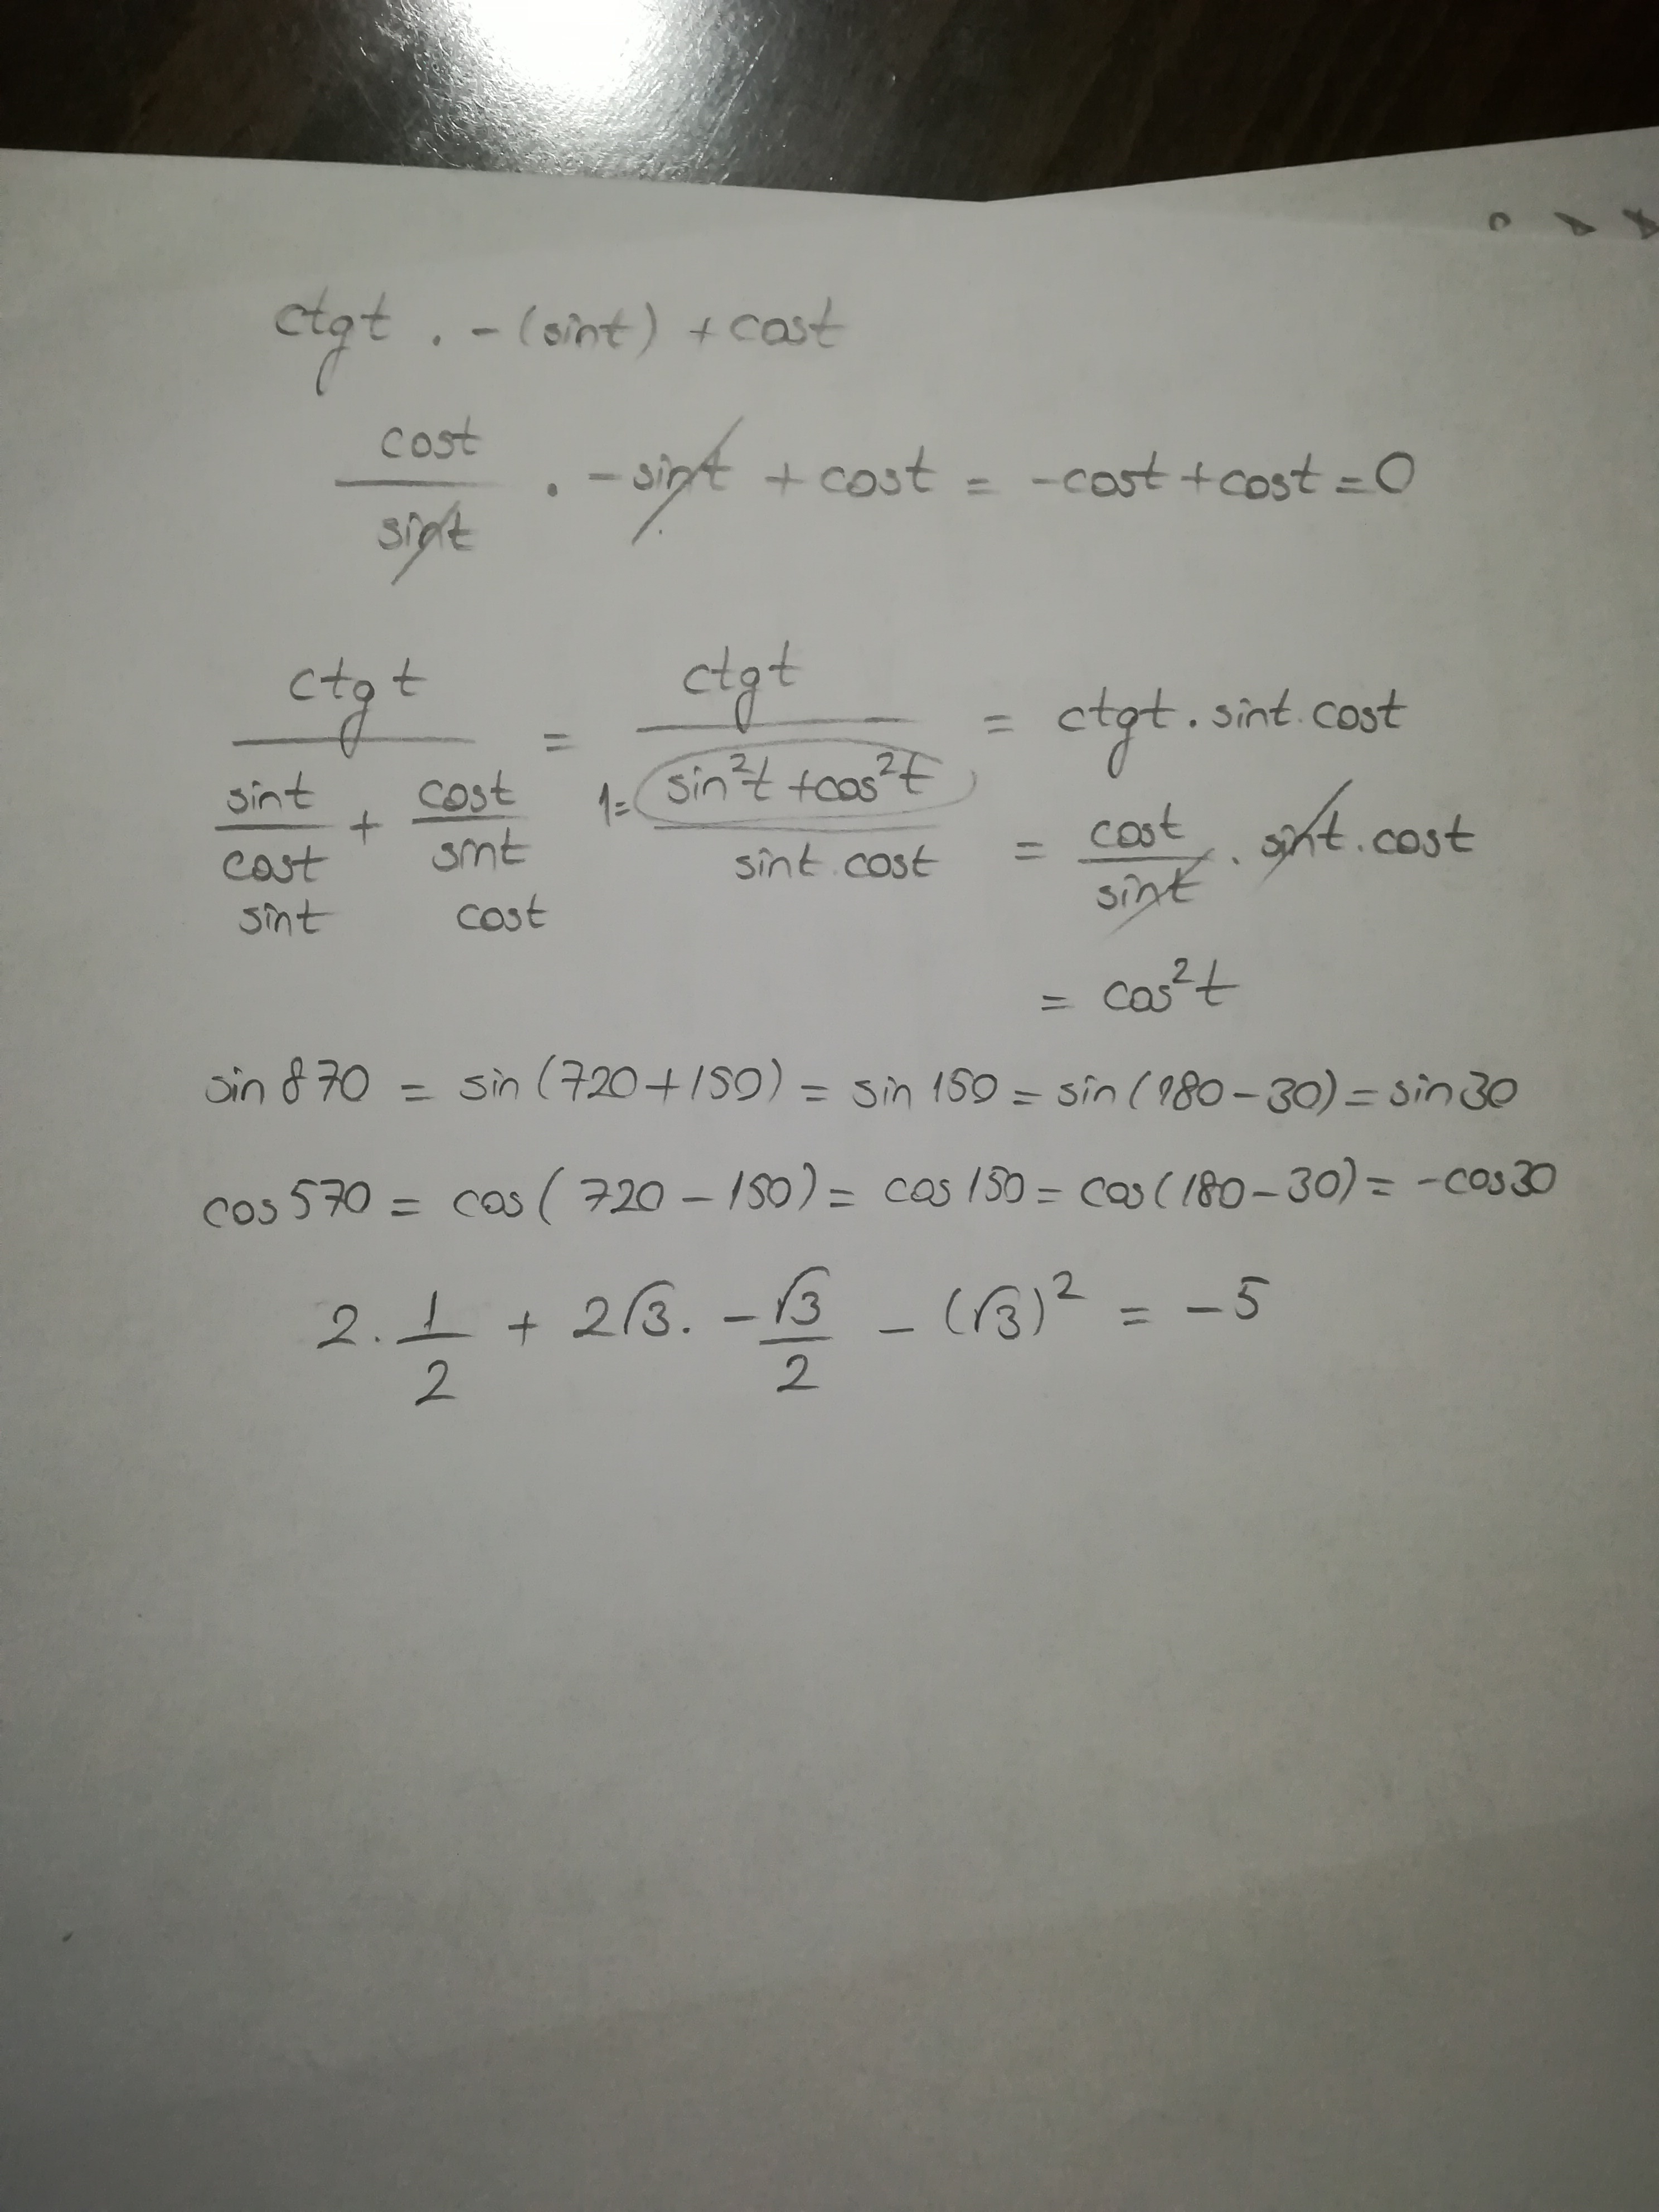 ctgt . -(sint) + cost
cost/sint . -sint + cost = -cost + cost = 0
ctgt/(sint/cost + cost/sint) = ctgt/((sin²t + cos²t)/(sint.cost)) = ctgt . sint.cost
1=
sint cost
= cost/sint . sint.cost
= cos²t
sin 870 = sin(720+150) = sin 150 = sin(180-30) = sin30
cos570 = cos(720-150) = cos150 = cos(180-30) = -cos30
2 . 1/2 + 2√3 . -√3/2 - (√3)² = -5